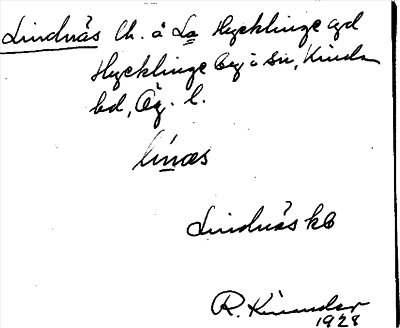 Lindnäs lh. å La Hycklinge egd
Hycklinge by i sn, Kinda
hd, Ög. l.
línæs
Lindnäs kb
R. Kinander
1928